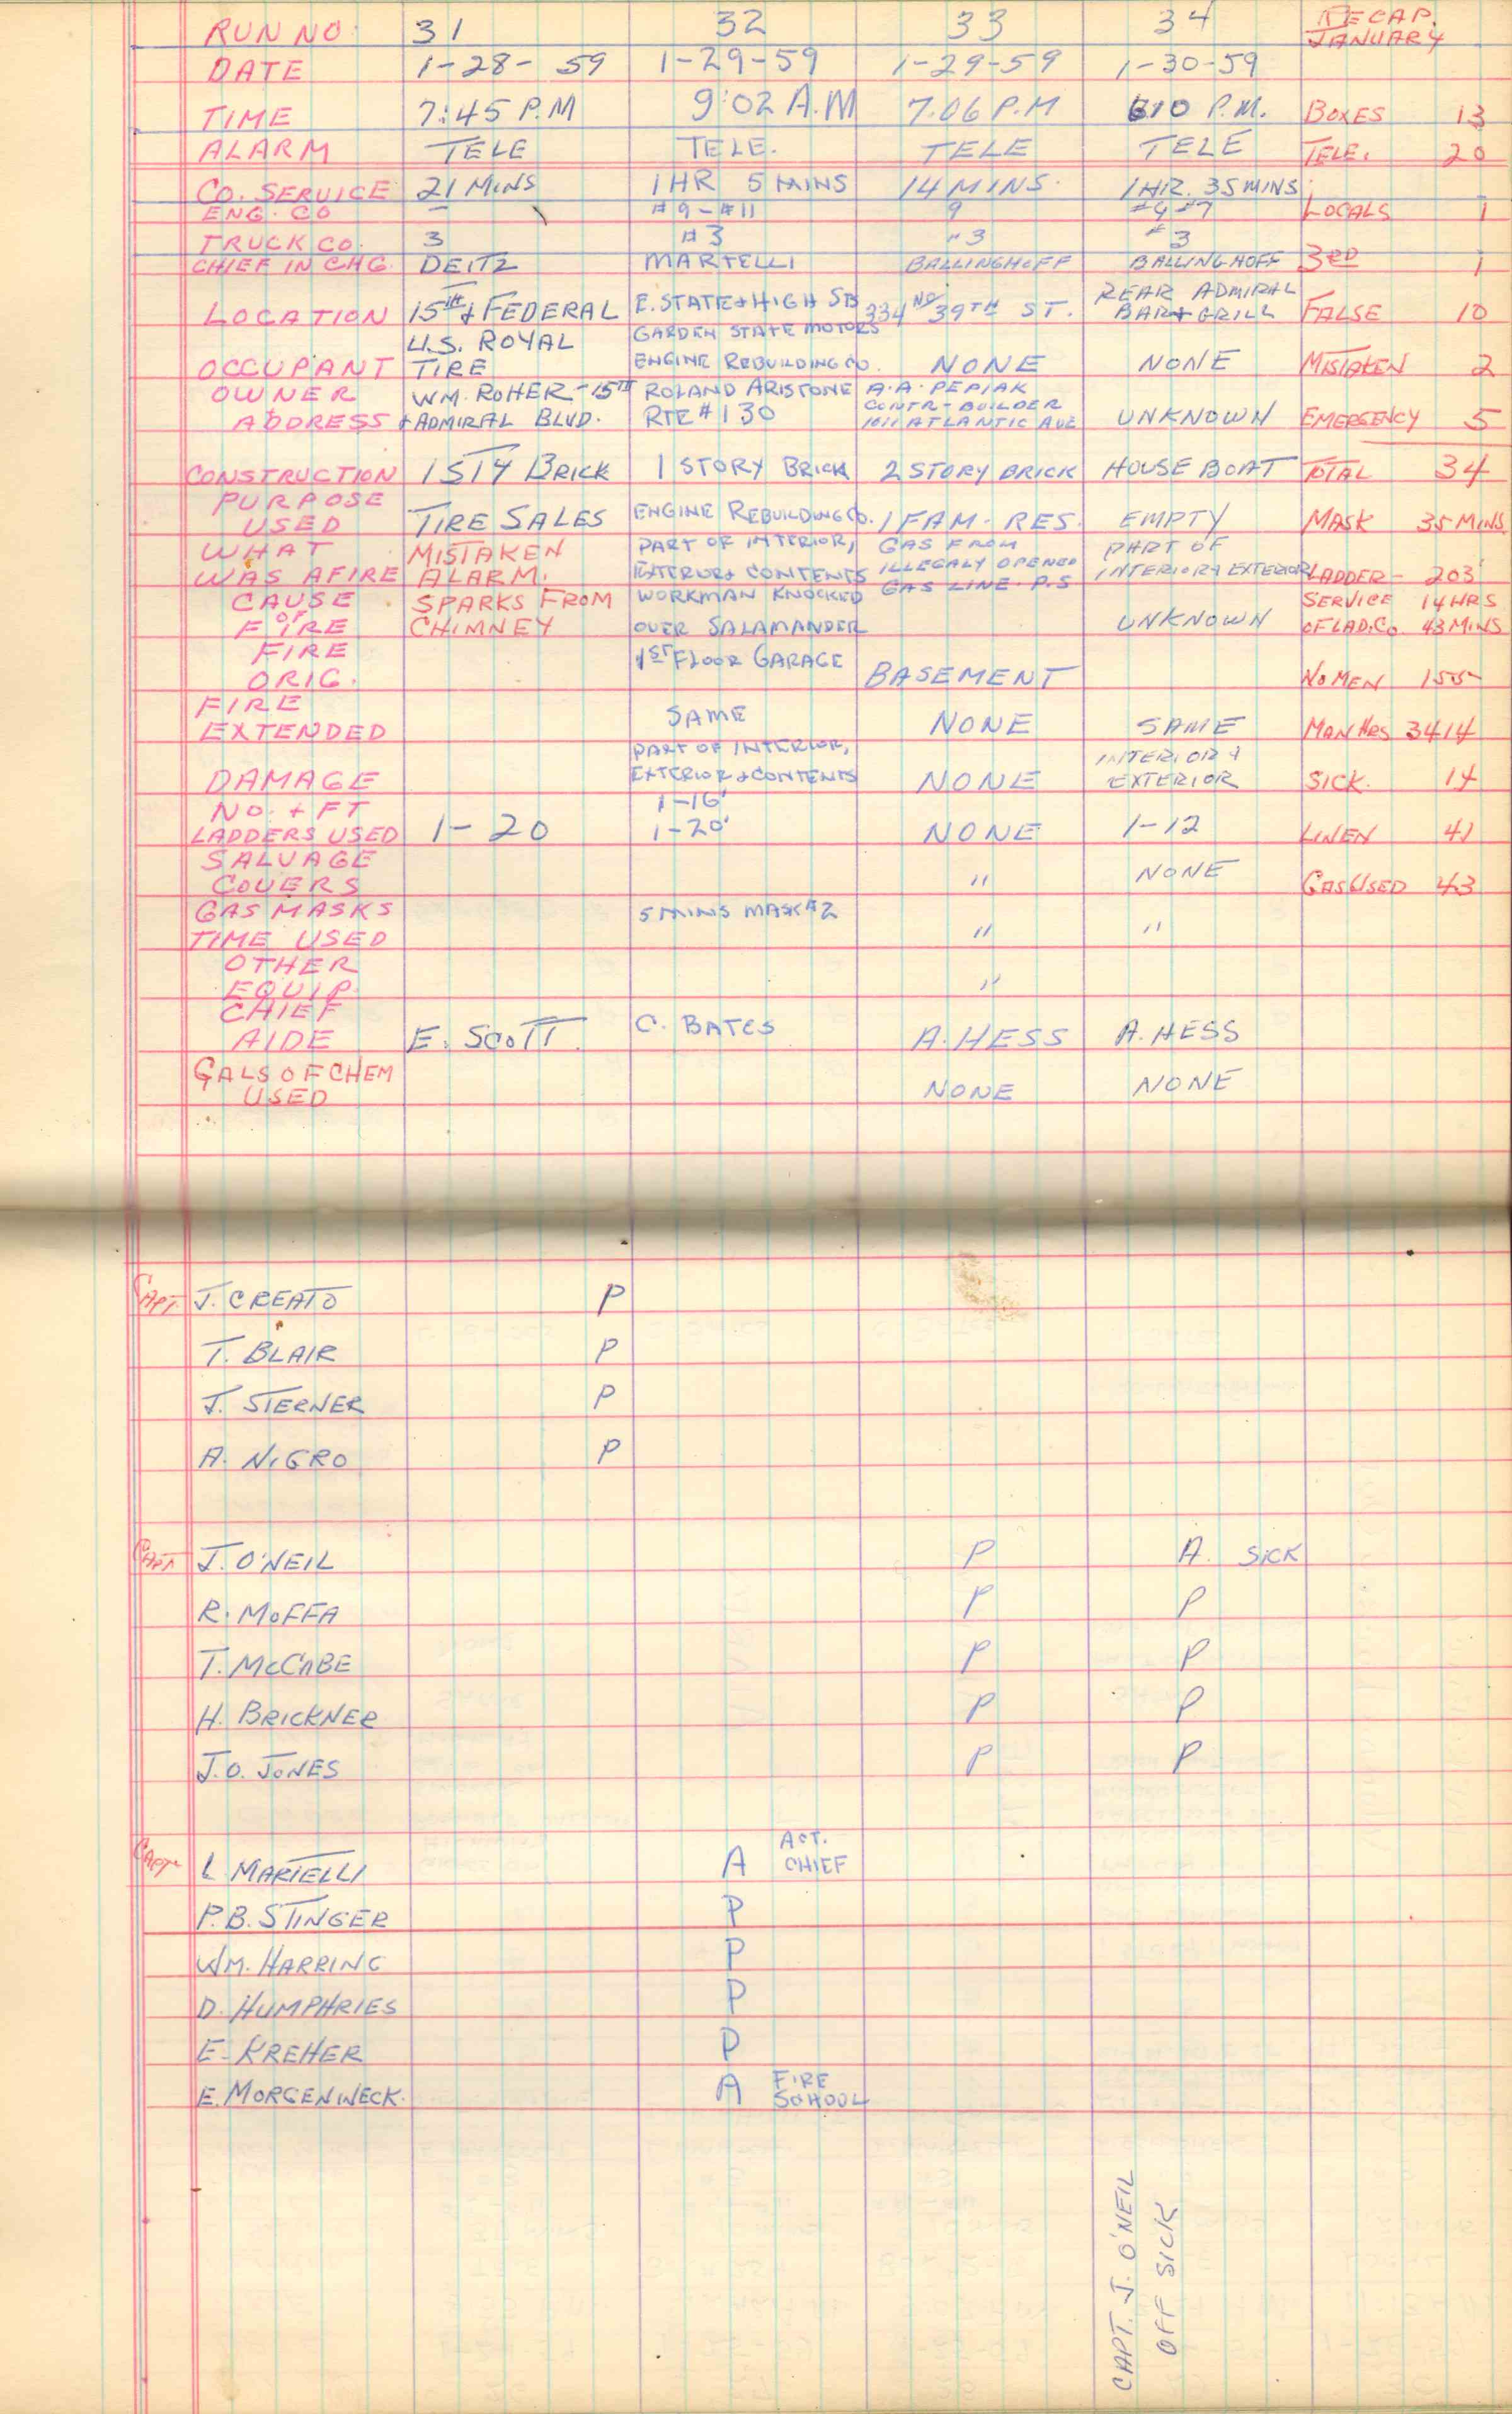 RUN NO. 31 32 33 34 RECAP. JANUARY
DATE 1-28-59 1-29-59 1-29-59 1-30-59
TIME 7:45 P.M 9:02 A.M 7:06 P.M 6:10 P.M. BOXES 13
ALARM TELE TELE. TELE TELE TELE. 20
CO. SERVICE 21 MINS 1 HR 5 MINS 14 MINS. 1 HR. 35 MINS
ENG. CO — #9-#11 9 #9 #7 LOCALS 1
TRUCK CO. 3 #3 "3 #3
CHIEF IN CHG. DEITZ MARTELLI BALLINGHOFF BALLINGHOFF 3RD 1
REAR ADMIRAL
LOCATION 15TH & FEDERAL E. STATE & HIGH STS 334 NO 39TH ST. BAR & GRILL FALSE 10
U.S. ROYAL GARDEN STATE MOTORS
OCCUPANT TIRE ENGINE REBUILDING CO. NONE NONE MISTAKEN 2
OWNER WM. ROHER-15TH ROLAND ARISTONE A.A. PEPIAK
CONTR-BUILDER
ADDRESS & ADMIRAL BLVD. RTE #130 1011 ATLANTIC AVE UNKNOWN EMERGENCY 5
CONSTRUCTION 1 STY BRICK 1 STORY BRICK 2 STORY BRICK HOUSE BOAT TOTAL 34
PURPOSE
USED TIRE SALES ENGINE REBUILDING CO. 1 FAM. RES. EMPTY MASK 35 MINS
WHAT MISTAKEN PART OF INTERIOR, GAS FROM PART OF
WAS AFIRE ALARM. EXTERIOR & CONTENTS ILLEGALY OPENED INTERIOR & EXTERIOR LADDER- 203'
CAUSE SPARKS FROM WORKMAN KNOCKED GAS LINE. P.S SERVICE 14 HRS
OF
FIRE CHIMNEY OVER SALAMANDER UNKNOWN OF LAD. CO. 43 MINS
FIRE 1ST FLOOR GARAGE
ORIG. BASEMENT NO MEN 155
FIRE
EXTENDED SAME NONE SAME MAN HRS 3414
PART OF INTERIOR, INTERIOR &
DAMAGE EXTERIOR & CONTENTS NONE EXTERIOR SICK. 14
NO. & FT 1-16'
LADDERS USED 1-20 1-20' NONE 1-12 LINEN 41
SALVAGE
COVERS " NONE GAS USED 43
GAS MASKS 5 MINS MASK #2
TIME USED " "
OTHER
EQUIP. "
CHIEF
AIDE E. SCOTT C. BATES A. HESS A. HESS
GALS OF CHEM
USED NONE NONE
CAPT. J. CREATO P
T. BLAIR P
J. STERNER P
A. NIGRO P
CAPT. J. O'NEIL P A. SICK
R. MOFFA P P
T. MCCABE P P
H. BRICKNER P P
J.O. JONES P P
ACT.
CAPT. L MARTELLI A CHIEF
P.B. STINGER P
WM. HARRING P
D. HUMPHRIES P
E. KREHER P
E. MORGENWECK. A FIRE
SCHOOL
CAPT. J. O'NEIL
OFF SICK